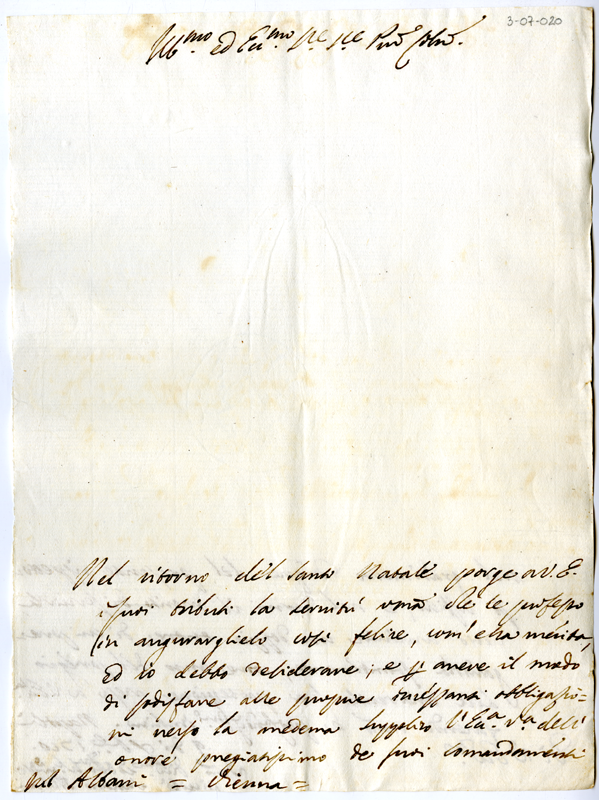 3-07-020
Ill.mo ed Ecc.mo Sig.re Sig.re P̃ron Col̃mo.
Nel ritorno del Santo Natale porge a V. E.
i suoi tributi la servitù che le professo
in augurarglielo così felice, com'ella merita,
ed io debbo desiderare; e p avere il modo
di sodisfare alle proprie obbligazio=
ni verso la medema supplico l'Ecc.a V.a dell'
onore pregiatissimo de suoi comandamenti
Albani = Vienna =